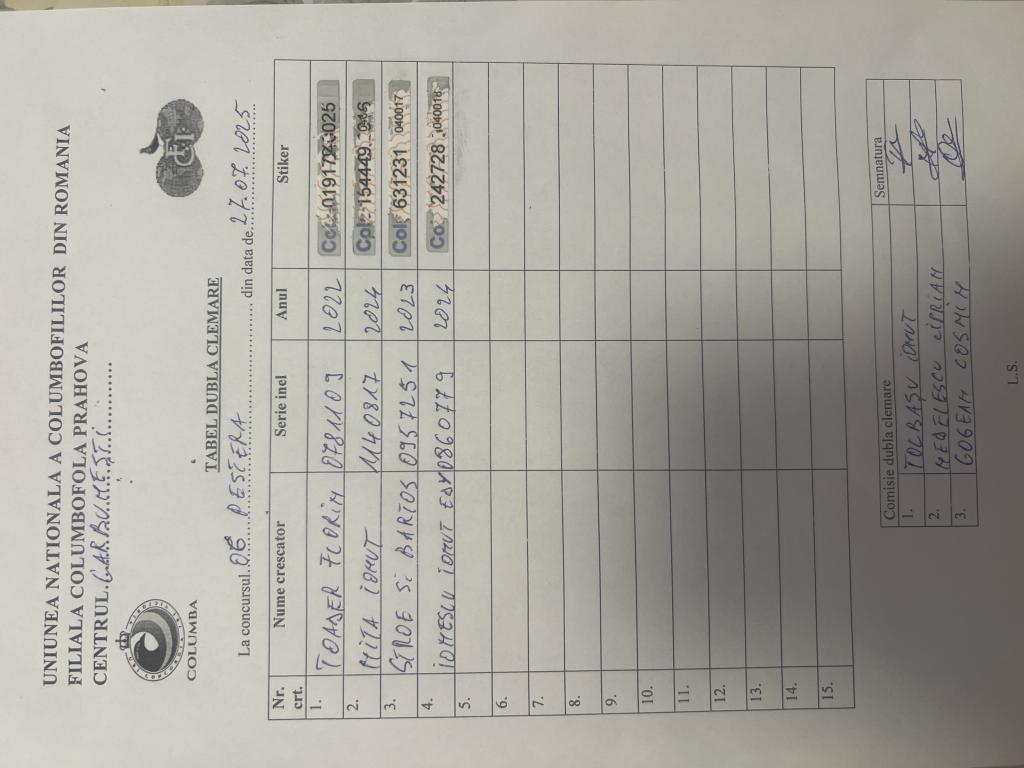 UNIUNEA NATIONALA A COLUMBOFILILOR DIN ROMANIA
FILIALA COLUMBOFOLA PRAHOVA
CENTRUL.GARBUMESTI
COLUMBA
TABEL DUBLA CLEMARE
La concursul 06 PESTERA din data de 27.07.2025
Nr. crt. Nume crescator Serie inel Anul Stiker
1. TOADER FLORIN 0781109 2022
2. MITA IONUT 1140817 2024
3. SARDE SI BARTOS 0957251 2023 631231 040017
4. IONESCU IONUT EDY 0860779 2024 242728 040018
5.
6.
7.
8.
9.
10.
11.
12.
13.
14.
15.
Comisie dubla clemare Semnatura
1. IONUT
2. MEDELESCU CIPRIAN
3. GOGEAN COSMIN
L.S.